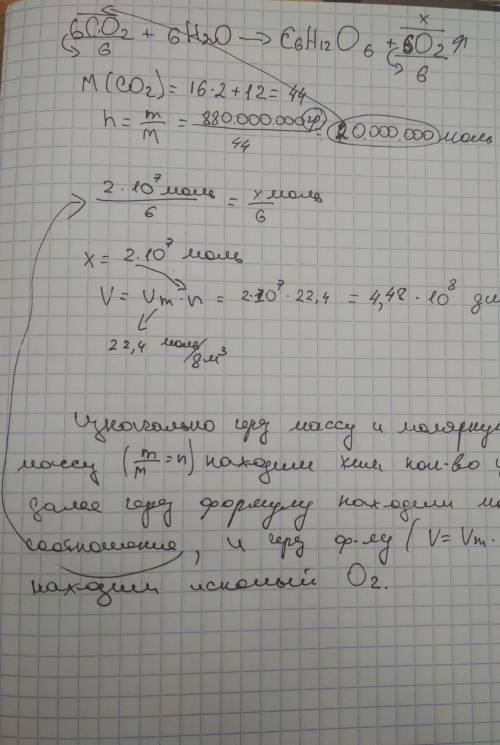 x
6CO2 + 6H2O → C6H12O6 + 6O2 ↑
6 6
M(CO2) = 16·2+12 = 44
n = m/M = 880.000.000(г)/44 = 20.000.000 моль
2·10^7 моль/6 = x моль/6
x = 2·10^7 моль
V = Vm·n = 2·10^7·22,4 = 4,48·10^8 дм
22,4 моль/дм3
Изначально через массу и молярную
массу (m/M = n) находим хим кол-во
далее через формулу находим
соотношение, и через ф-лу (V = Vm·
находим искомый O2.